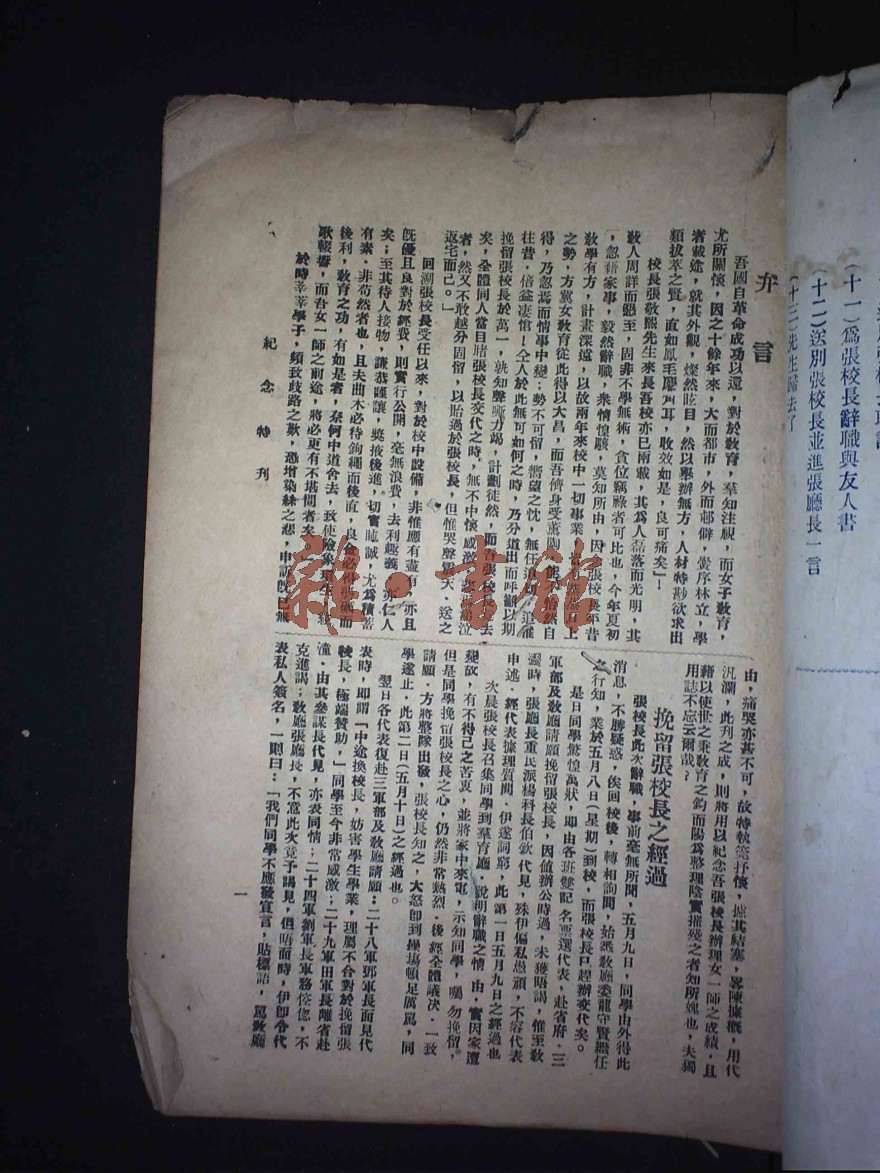 （十一）為張校長辭職與友人書
（十二）送別張校長並進張廳長一言
（十三）先生歸去了
弁言
吾國自革命成功以還，對於教育，羣知注視，而女子教育，
尤所關懷，因之十餘年來，大而都市，外而邨僻，黌序林立，學
者載途，就其外觀，燦然眩目，然以舉辦無方，人材特尠欲求出
類拔萃之賢，直如鳳毛麐角耳，收效如是，良可痛矣！
校長張敬熙先生來長吾校亦已兩載，其為人磊落而光明，其
教人周詳而懇至，固非不學無術，貪位竊祿者可比也，今年夏初
，忽藉家事，毅然辭職，衆情惶駭，莫知所由，因
教學有方，計畫深遠，以故兩年來校中一切事業
之勢，方冀女教育從此得以大昌，而吾儕身受薰陶
得，乃忽焉而情事中變；勢不可留，嚮望之忱，無任
往昔，倍益凄愴！仝人於此無可如何之時，乃分道出而呼籲以期
挽留張校長於萬一，孰知聲嘶力竭，計劃徒然，而吾張校長去
矣，全體同人當目睹張校長交代之時，無不中懷感激，
者，然又不敢越分固留，以貽過於張校長，但惟哭聲 天，送之
返宅而已。
回溯張校長受任以來，對於校中設備，非惟應有盡有，亦且
旣優且良對於經費，則實行公開，毫無浪費，去利趣義，亦仁人
矣；至其待人接物，謙恭謹讓，奬掖後進，切實肫誠，尤為積蓄
有素，非苟然者也，且夫曲木必待鉤繩而後直，良金必待 礪而
後利，教育之功，有如是者，奈何中道舍去，致使險象
歌輟響，而吾女一師之前途，將必更有不堪問者矣
於時莘莘學子，頻致歧路之歎，恐增染絲之悲，申訴旣已無
紀念特刊
由，痛哭亦甚不可，故特執筦抒懷，攄其結塞，畧陳擄概，用代
汎瀾，此刊之成，則將用以紀念吾張校長辦理女一師之成績，且
藉以使世之乘教育之鈞而陽為整理陰實摧殘之者知所媿也，夫獨
用誌不忘云爾哉？
挽留張校長之經過
張校長此次辭職，事前毫無所聞，五月九日，同學由外得此
消息，不勝疑惑，俟回校後，轉相詢問，始悉教廳委龍守賢繼任
之行知，業於五月八日（星期）到校，而張校長已趕辦交代矣。
是日同學驚惶萬狀，即由各班雙記名票選代表，赴省府，三
軍部及教廳請願挽留張校長，因值辦公時過，未獲晤謁，惟至教
廳時，張廳長重民派楊科長伯欽代見，殊伊偏私愚頑，不容代表
申述，經代表據理質問，伊遂詞窮，此第一日五月九日之經過也
次晨張校長召集同學到羣育廳，說明辭職之情由，實因家遭
變故，有不得已之苦衷，並將家中來電，示知同學，囑勿挽留，
但是同學挽留張校長之心，仍然非常熱烈，後經全體議決，一致
請願，方將整隊出發，張校長知之，大怒卽到操塲頓足厲駡，同
學遂止，此第二日（五月十日）之經過也。
翌日各代表復赴三軍部及教廳請願：二十八軍鄧軍長面見代
表時，即謂「中途換校長，妨害學生學業，理屬不合對於挽留張
校長，極端贊助，」同學至今非常感激；二十九軍田軍長離省赴
潼，由其參謀長代見，亦表同情；二十四軍劉軍長軍務倥偬，不
克進謁；教廳張廳長，不意此次竟予謁見，但晤面時，伊卽令代
表私人簽名，一則曰：「我們同學不應發宣言，貼標語，駡教廳
一
雜·書館